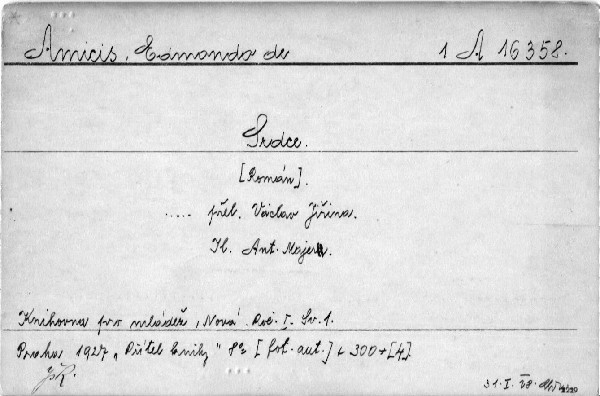 Amicis, Edmondo de 1 A 16358.
Srdce.
[Román].
..... přel. Václav Jiřina.
Il. Ant. Majer.
Knihovna pro mládež, Nová. Roč. I. Sv. 1.
Praha 1927 „Přítel knihy“ 8° [fot. aut.] + 300 + [4]
31. I. 28.